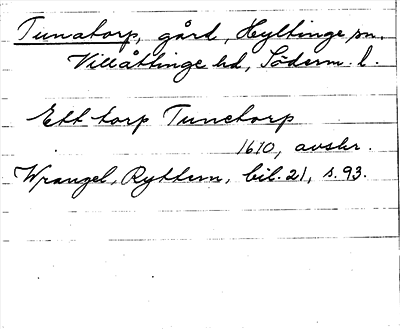 Tunatorp, gård, Hyltinge sn,
Villåttinge hd, Söderm. l.
Ett torp Tunetorp
1610, avskr.
Wrangel, Ryttern, bil. 21, s. 93.